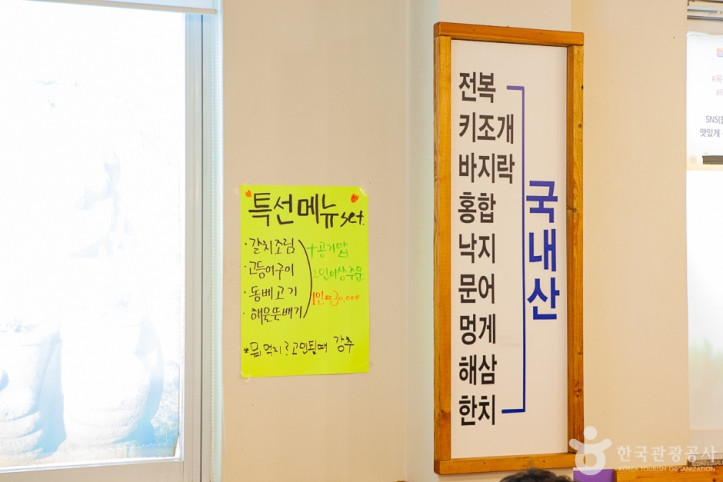 특선메뉴 set.
· 갈치조림
· 고등어구이
· 돔베고기
· 해물뚝배기
+공기밥
2인이상주문
1인 ₩30,000
* 뭐 먹지? 고민될때 강추
전복
키조개
바지락
홍합
낙지
문어
멍게
해삼
한치
국내산
SNS(
맛있게
한국관광공사
KOREA TOURISM ORGANIZATION